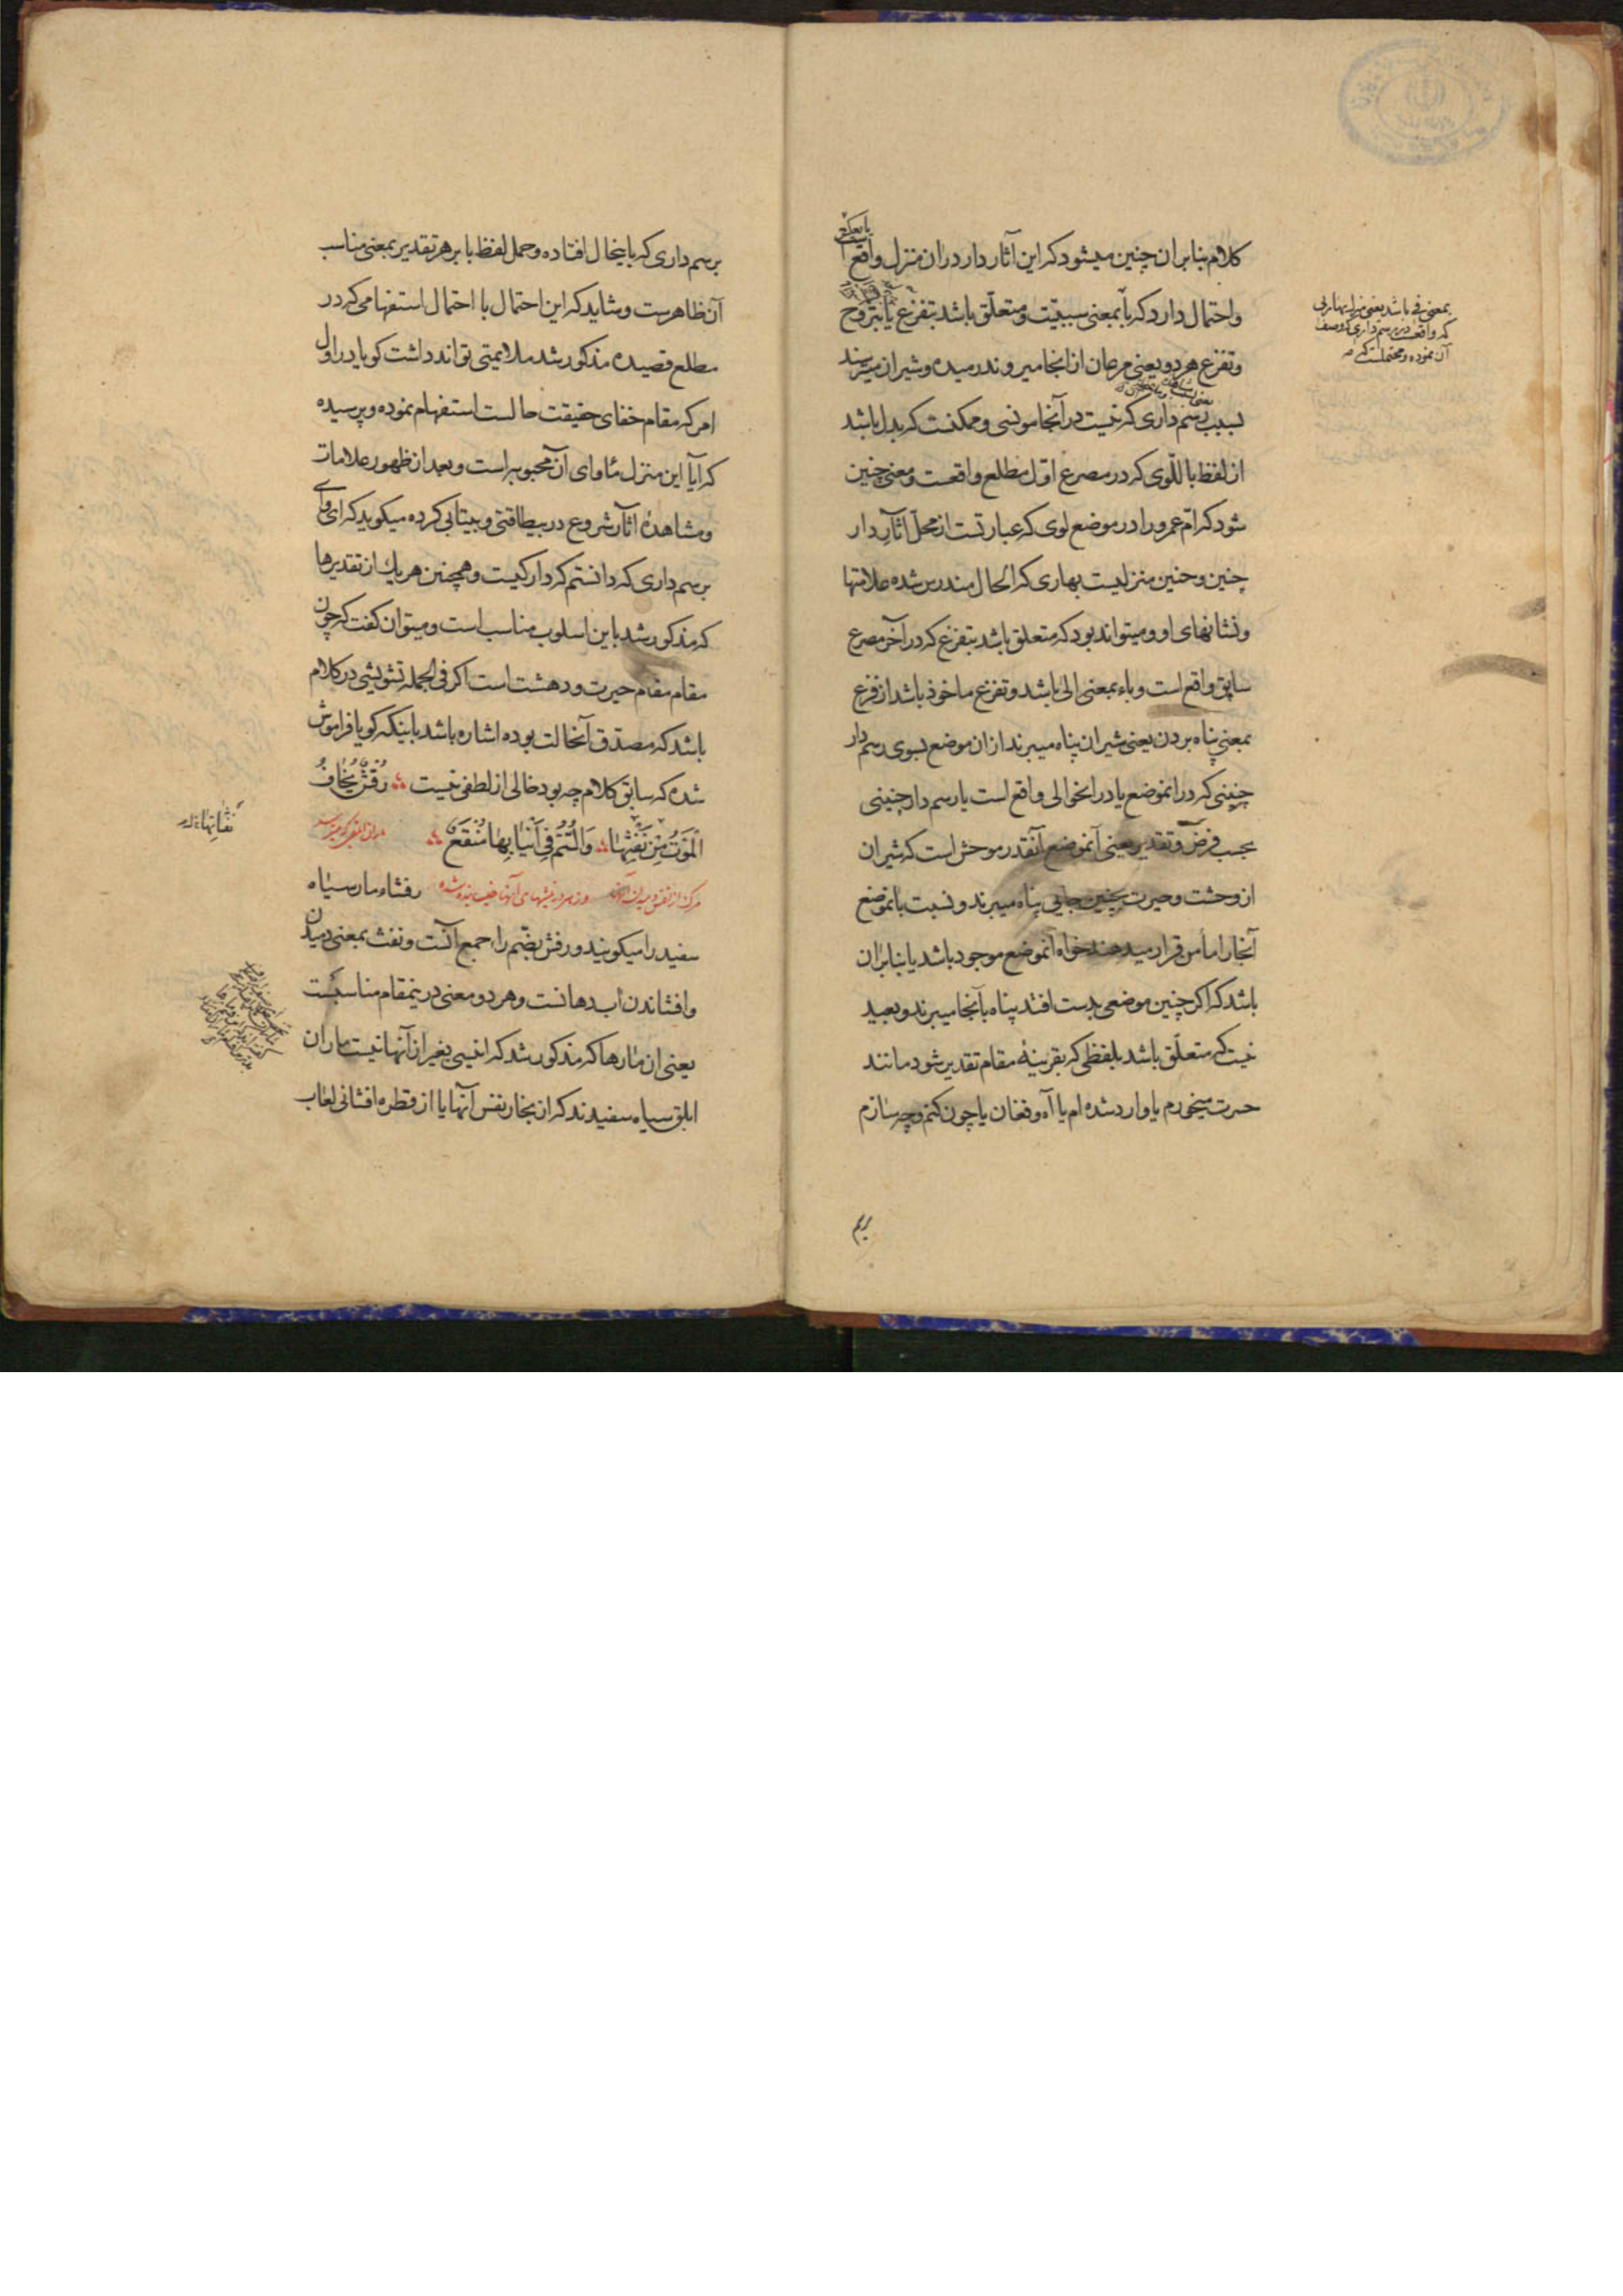 کلام بنابران چنین میشود که این آثار دار دران منزل واقع
واحتمال دارد که باء بمعنی سببیّت و متعلّق باشد بتفزع یا بتروح
وتفزع هر دو یعنی مرغان از انجا میروند رمیده وشیران میترسند
بسبب رسم داری که نیست در آنجا مونسی وممکنست که بدل باشد
از لفظ باللّوی که در مصرع اوّل مطلع واقعست ومعنی چنین
شود که امّ عمرو را در موضع لوی که عبارتست از محلّ اثآر دار
چنین وچنین منزلیست بهاری که الحال مندرس شده علامتها
ونشانهای او ومیتواند بود که متعلق باشد بتفزع که در آخر مصرع
سابق واقع است وباء بمعنی الی باشد وتفزع ماخوذ باشد از فزع
بمعنی پناه بردن یعنی شیران پناه میبرند ازان موضع بسوی رسم دار
چنینی که در انموضع یا در انحوالی واقع است یا رسم دار چنینی
بحسب فرض وتقدیر یعنی آنموضع آنقدر موحش است که شیران
از وحشت وحیرت بچنین جایی پناه میبرند ونسبت بانموضع
آنجا را مأمن قرار میدهند خواه آنموضع موجود باشد یا بنابران
باشد که اکر چنین موضعی بدست افتد پناه بآنجا میبرند وبعید
نیست که متعلّق باشد بلفظی که بقرینهٔ مقام تقدیر شود مانند
حسرت میخورم یا وارد شده ام یا آه وفغان یا چون کنم وچه سازم
بمعنی فی باشد یعنی منزلیست بهاری
که واقعست در رسم داری که وصف
آن نموده ومحتملست که
برسم
برسم داری که باینحال افتاده وحمل لفظ با بر هر تقدیر بمعنی مناسب
آن ظاهرست وشاید که این احتمال با احتمال استفهامی که در
مطلع قصیده مذکور شد ملایمتی تواند داشت کویا در اول
امر که مقام خفای حقیقت حالست استفهام نموده وپرسیده
که آیا این منزل مأوای آن محبوبه است وبعد از ظهور علامات
ومشاهدهٔ اثآر شروع در بیطاقتی وبیتابی کرده میکوید که ای وای
برسم داری که دانستم که دار کیست وهمچنین هر یك از تقدیرها
که مذکور شد باین اسلوب مناسب است ومیتوان کفت که چون
مقام مقام حیرت ودهشت است اکر فی الجمله تشویشی در کلام
باشد که مصدّق آنحالت بوده اشاره باشد باینکه کویا فراموش
شده که سابق کلام چه بود خالی از لطفی نیست رُقْشٌ یُخَافُ
الْمَوْتُ مِنْ نَفْثِهَا وَالسُّمُّ فِی اَنْیَابِهَا مُنْقَعُ
رقشاء مار سیاه
سفید را میکویند ورقش بضّم را جمع آنست ونفث بمعنی دمیدن
وافشاندن اب دهانست وهر دو معنی درینمقام مناسبست
یعنی ان مارها که مذکور شد که انیسی بغیر از آنها نیست ماران
ابلق سیاه سفیدند که از بخار نفس آنها یا از قطره افشانی لعاب